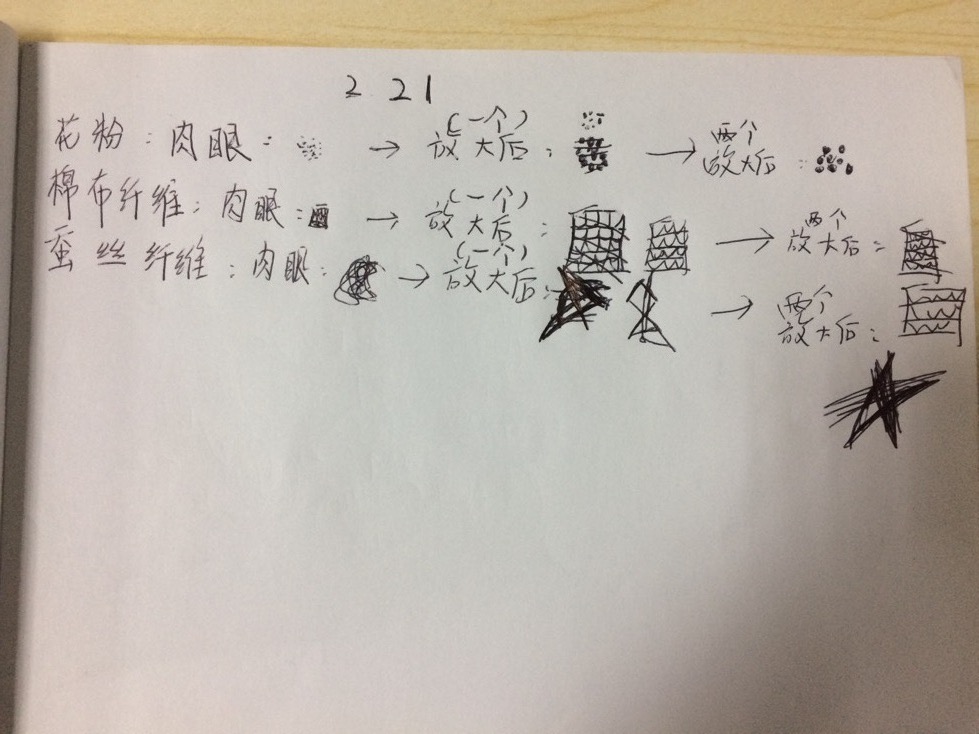 2 21
花粉：肉眼： → (一个)放大后： → 两个放大后：
棉布纤维：肉眼： → (一个)放大后： → 两个放大后：
蚕丝纤维：肉眼： → (一个)放大后： → 两个放大后：